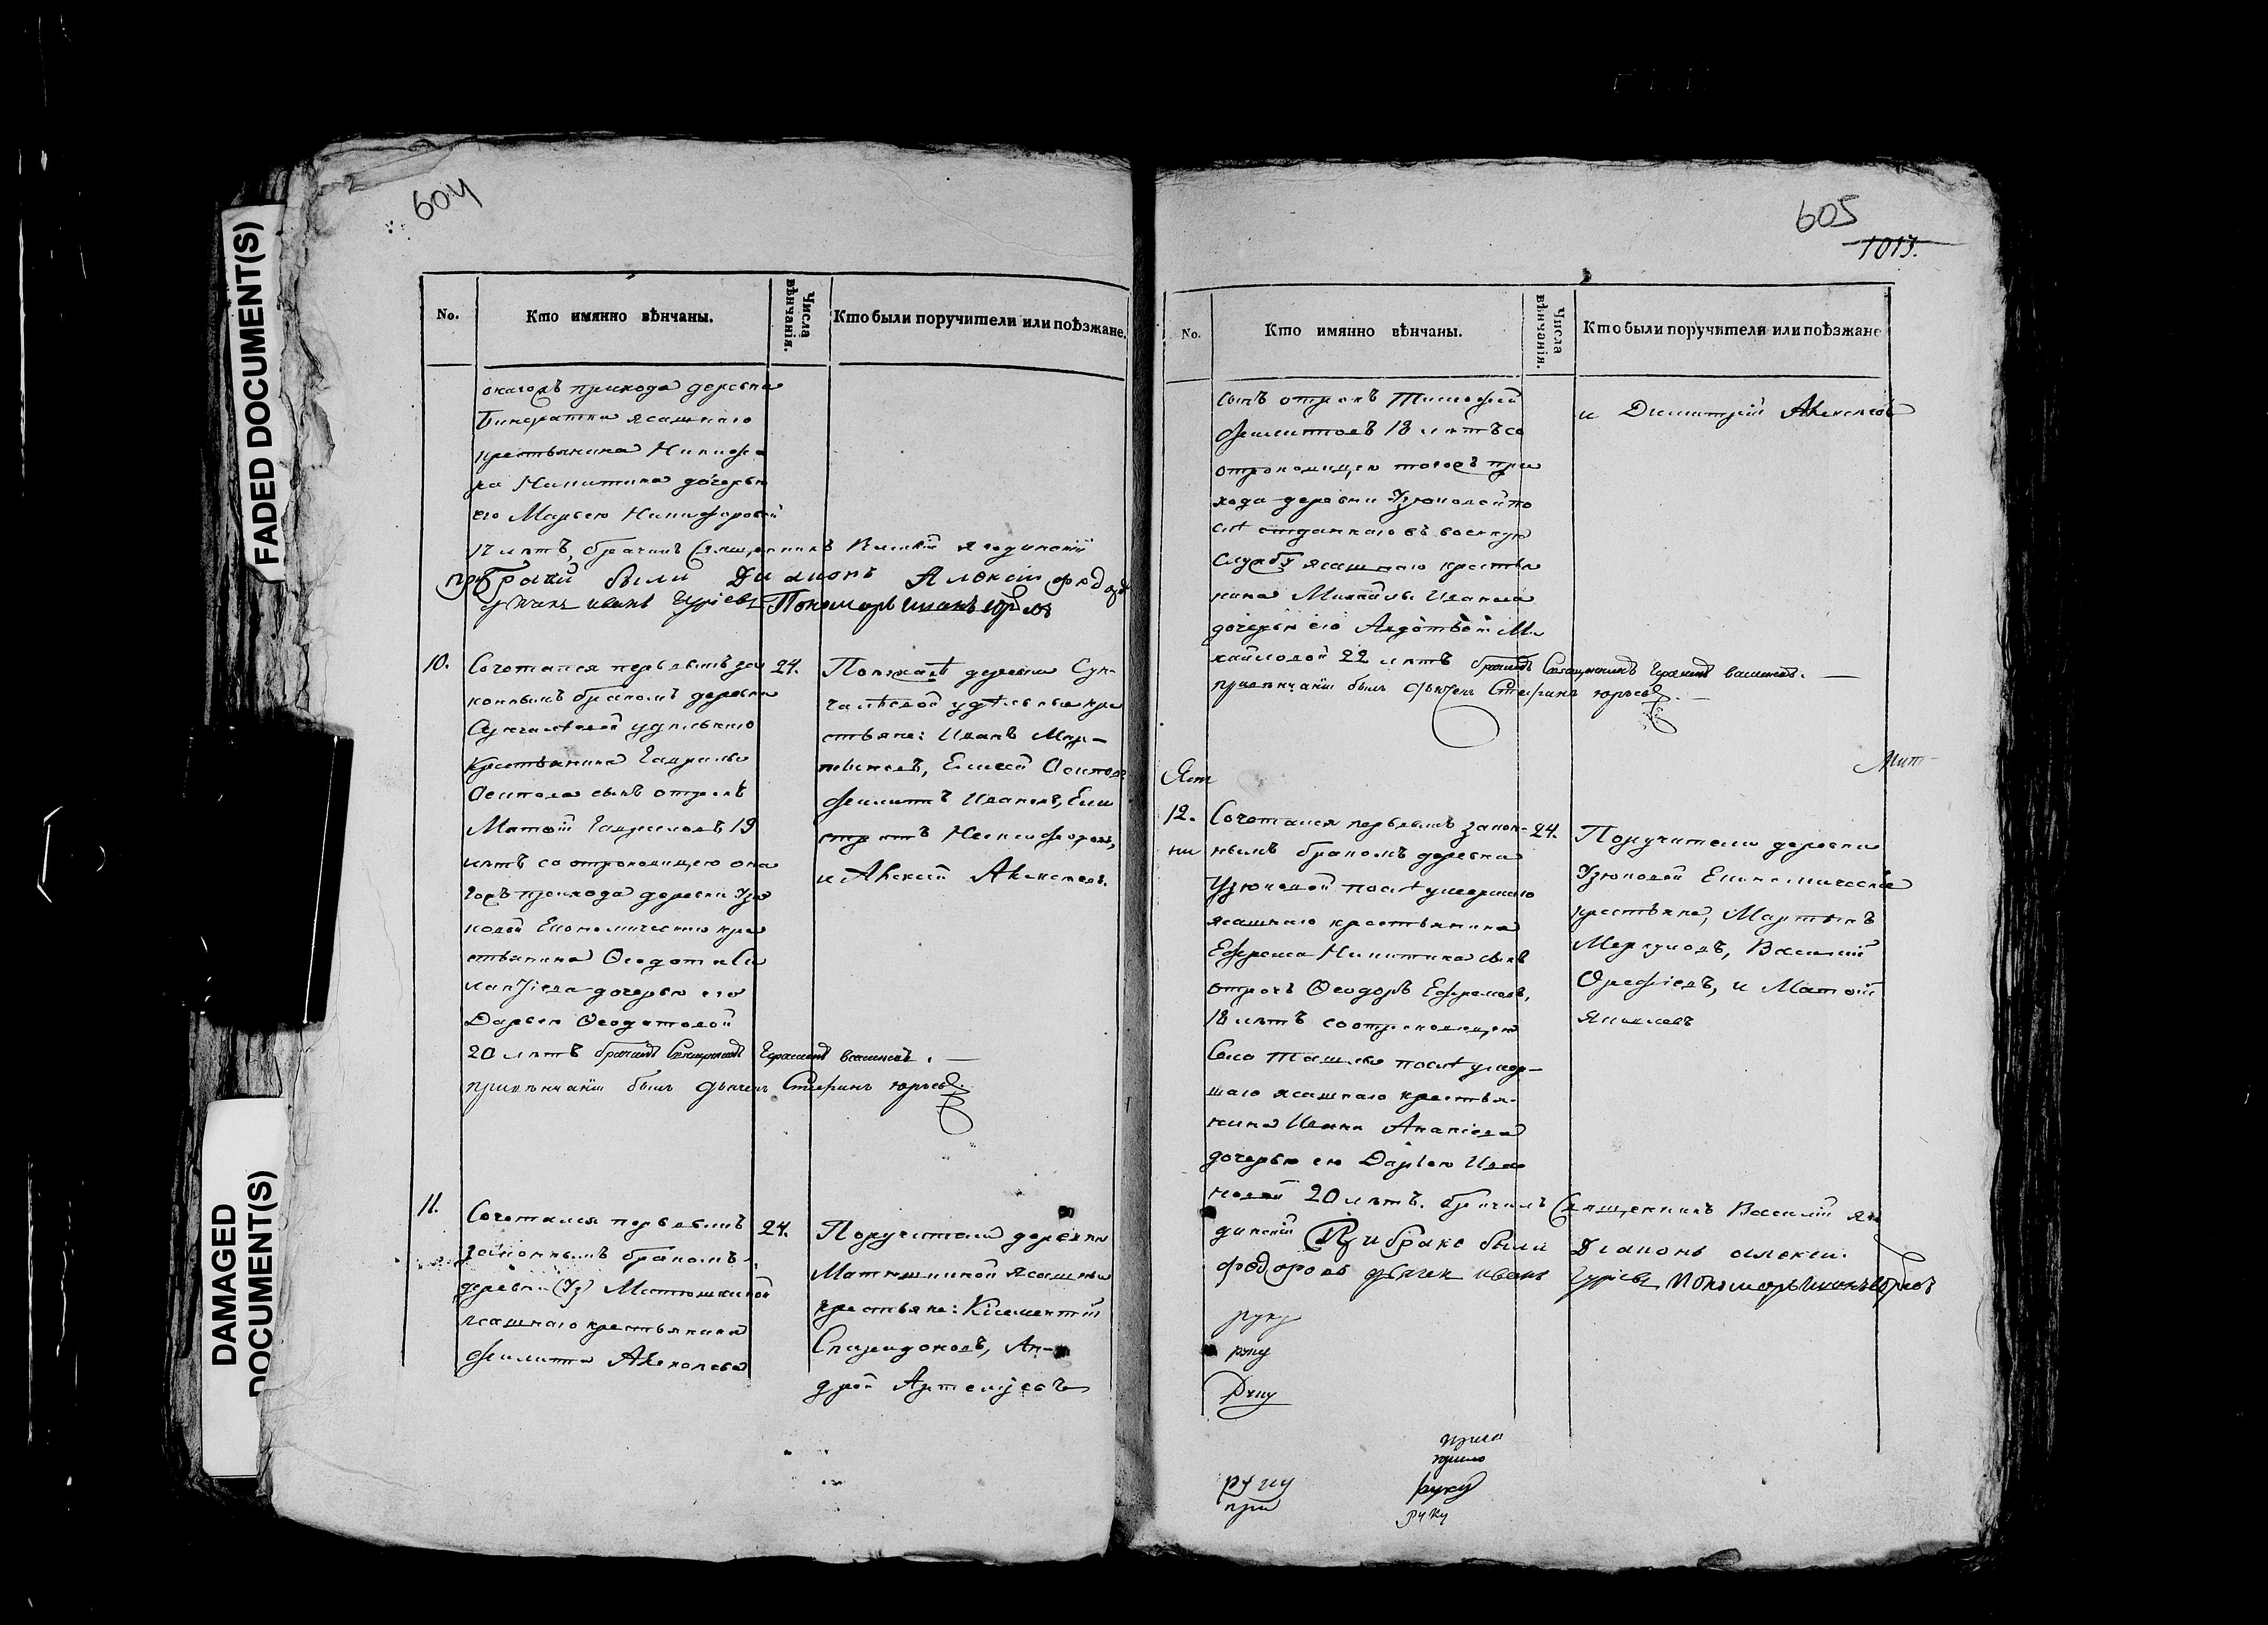 FADED DOCUMENT(S)
DAMAGED DOCUMENT(S)
604
No.
Кто имянно вѣнчаны.
Числа вѣнчанія.
Кто были поручители или поѣзжане.
прихода деревни
ясашнаго
крестьянина Никифо
ра Никитина дочерью
его Марьею Никифоровой
17 лѣтъ, брачилъ Священникъ Василій Ягодинскій
при браки были Диаконъ Алексій федоровъ
дьячекъ иванъ гуріевъ Пономарь иванъ
10.
Сочетался первымъ за
коннымъ бракомъ деревни
Сунчалѣевой удѣльнаго
Крестьянина Гаврилы
Осипова сынъ отрокъ
Матвѣй Гавриловъ 19
лѣтъ со отроковицею она
гожъ прихода деревни Узю
ковой Економическаго кре
стьянина Ѳеодота Си
дочерью его
Дарьею Ѳеодотовой
20 лѣтъ брачилъ Священникъ Герасимъ васильевъ.
привѣнчаніи былъ дьячекъ Стефанъ юрьевъ
24.
деревни Сун-
чалѣевой удѣльные кре
стьяне: Иванъ Мар-
Елисей Осиповъ
Филиппъ Ивановъ, Ели
стратъ Никифоровъ,
и Алексѣй
11.
Сочетался первымъ
законнымъ бракомъ
деревни (Уз) Матюшкиной
ясашнаго крестьянина
Филиппа
24.
Поручители деревни
Матюшкиной ясашные
крестьяне: Климентій
Спиридоновъ, Ан-
дрей Артемьевъ
605
1013.
No.
Кто имянно вѣнчаны.
Числа вѣнчанія.
Кто были поручители или поѣзжане
сынъ отрокъ Тимофей
Филиповъ 18 лѣтъ со
отроковицею тогожъ при
хода деревни Узюковой по
слѣ отданнаго въ военную
службу ясашнаго крестья
нина Михайлы Иванова
дочерью его Авдотьей Ми
хайловой 22 лѣтъ брачилъ Священникъ Герасимъ васильевъ.
привѣнчаніи былъ дьячекъ Стефанъ юрьевъ.
и Димитрій
12.
Сочетался первымъ закон-
нымъ бракомъ деревни
Узюковой послѣ умершаго
ясашнаго крестьянина
Ефрема Никитина сынъ
отрокъ Ѳеодоръ Ефремовъ,
18 лѣтъ со отроковицею
Села Ташлы послѣ умер-
шаго ясашнаго крестья-
нина Ивана Ананіева
дочерью ею Дарьею Ива
новой 20 лѣтъ. брачилъ Священникъ Василій Яго
динскій При браке были Діаконъ алексий.
федоровъ дьячек иванъ гуріевъ Пономарь иванъ
24.
Поручители деревни
Узюковой Економическіе
крестьяне, Мартынъ
Меркуловъ, Василій
Орефьевъ, и Матвѣй
Яковлевъ
руку
руку
Руку
руку
при
прило
руку
руку